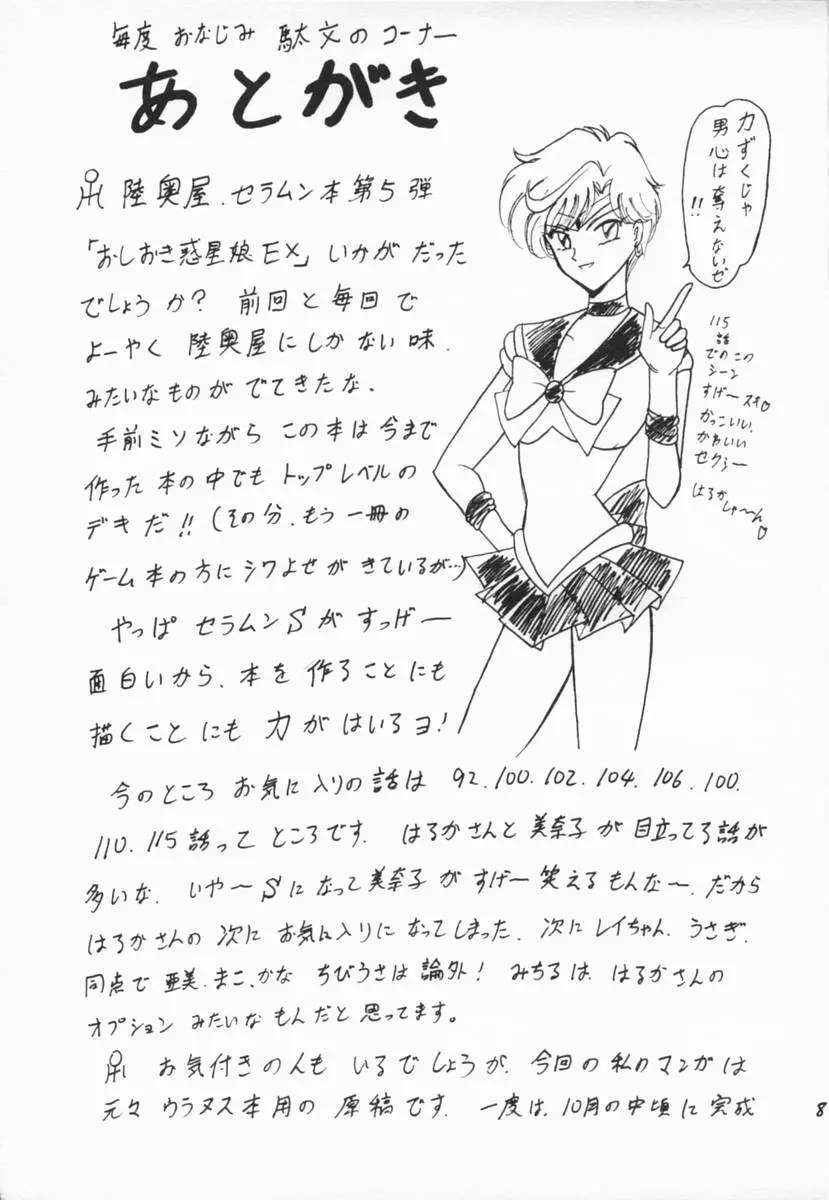 毎度 おなじみ 駄文のコーナー
あとがき
陸奥屋、セラムン本第5弾
「おしおき惑星娘EX」いかがだった
でしょうか? 前回と毎回で
よーやく 陸奥屋にしかない味、
みたいなものがでてきたな、
手前ミソながら この本は今まで
作った本の中でもトップレベルの
デキだ!!(その分、もう一冊の
ゲーム本の方にシワよせがきているが…)
やっぱ セラムンSがすっげー
面白いから、本を作ることにも
描くことにも力がはいるヨ!
今のところ お気に入りの話は 92.100.102.104.106.100.
110.115話って ところです. はるかさんと美奈子が目立ってる話が
多いな. いや〜Sになって美奈子がすげー笑えるもんな〜.だから
はるかさんの次に お気に入りに なってしまった. 次にレイちゃん、うさぎ.
同点で 亜美、まこ、かな ちびうさは論外! みちるは、はるかさんの
オプションみたいなもんだと思ってます。
お気付きの人も いるでしょうが、今回の私のマンガは
元々ウラヌス本用の 原稿です. 一度は、10月の中頃に完成
力ずくじゃ
男心は奪えないぜ
!!
115
話
でのこの
シーン
すげースキ♡
かっこいい、
かわいい
セクシー
はるか
しゃ〜ん♡
8